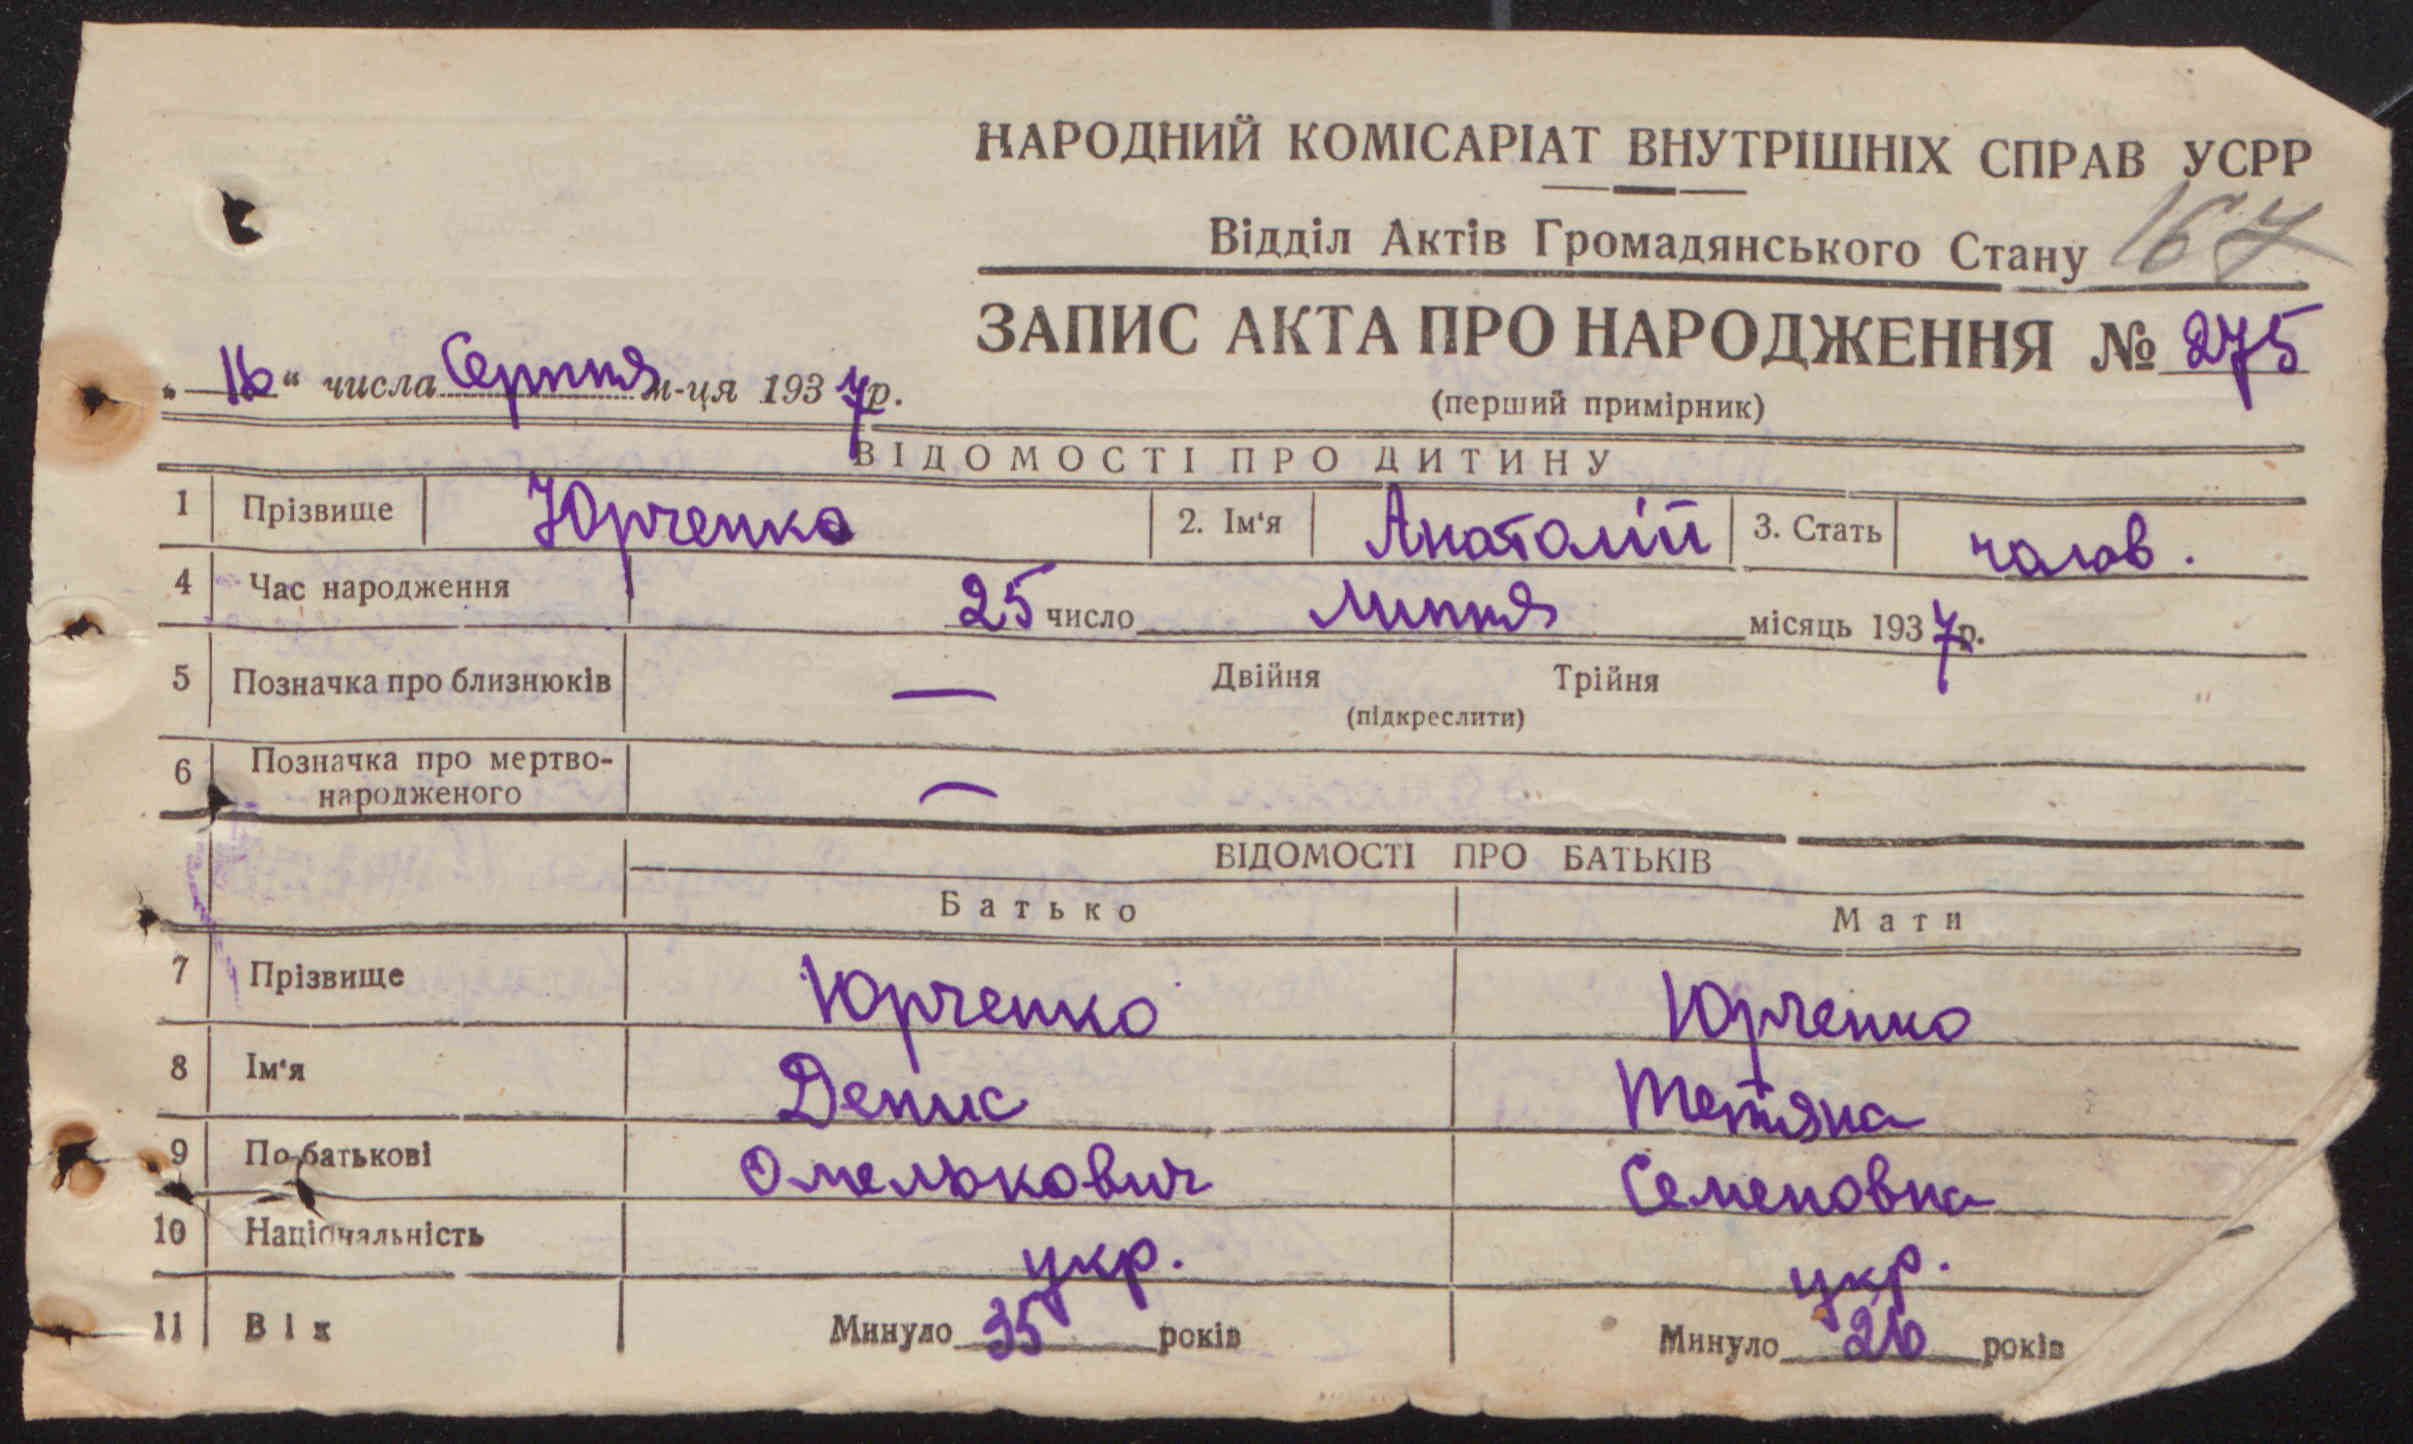 НАРОДНИЙ КОМІСАРІАТ ВНУТРІШНІХ СПРАВ УСРР
Відділ Актів Громадянського Стану 167
ЗАПИС АКТА ПРО НАРОДЖЕННЯ № 275
„ 16 “ числа Серпня м-ця 1937 р.
(перший примірник)
ВІДОМОСТІ ПРО ДИТИНУ
1 Прізвище Юрченко 2. Ім‘я Анатолій 3. Стать чолов.
4 Час народження 25 число Липня місяць 1937 р.
5 Позначка про близнюків — Двійня Трійня
(підкреслити)
6 Позначка про мертво-
народженого —
ВІДОМОСТІ ПРО БАТЬКІВ
Батько Мати
7 Прізвище Юрченко Юрченко
8 Ім‘я Денис Тетяна
9 По батькові Омелькович Семеновна
10 Національність укр. укр.
11 Вік Минуло 35 років Минуло 26 років